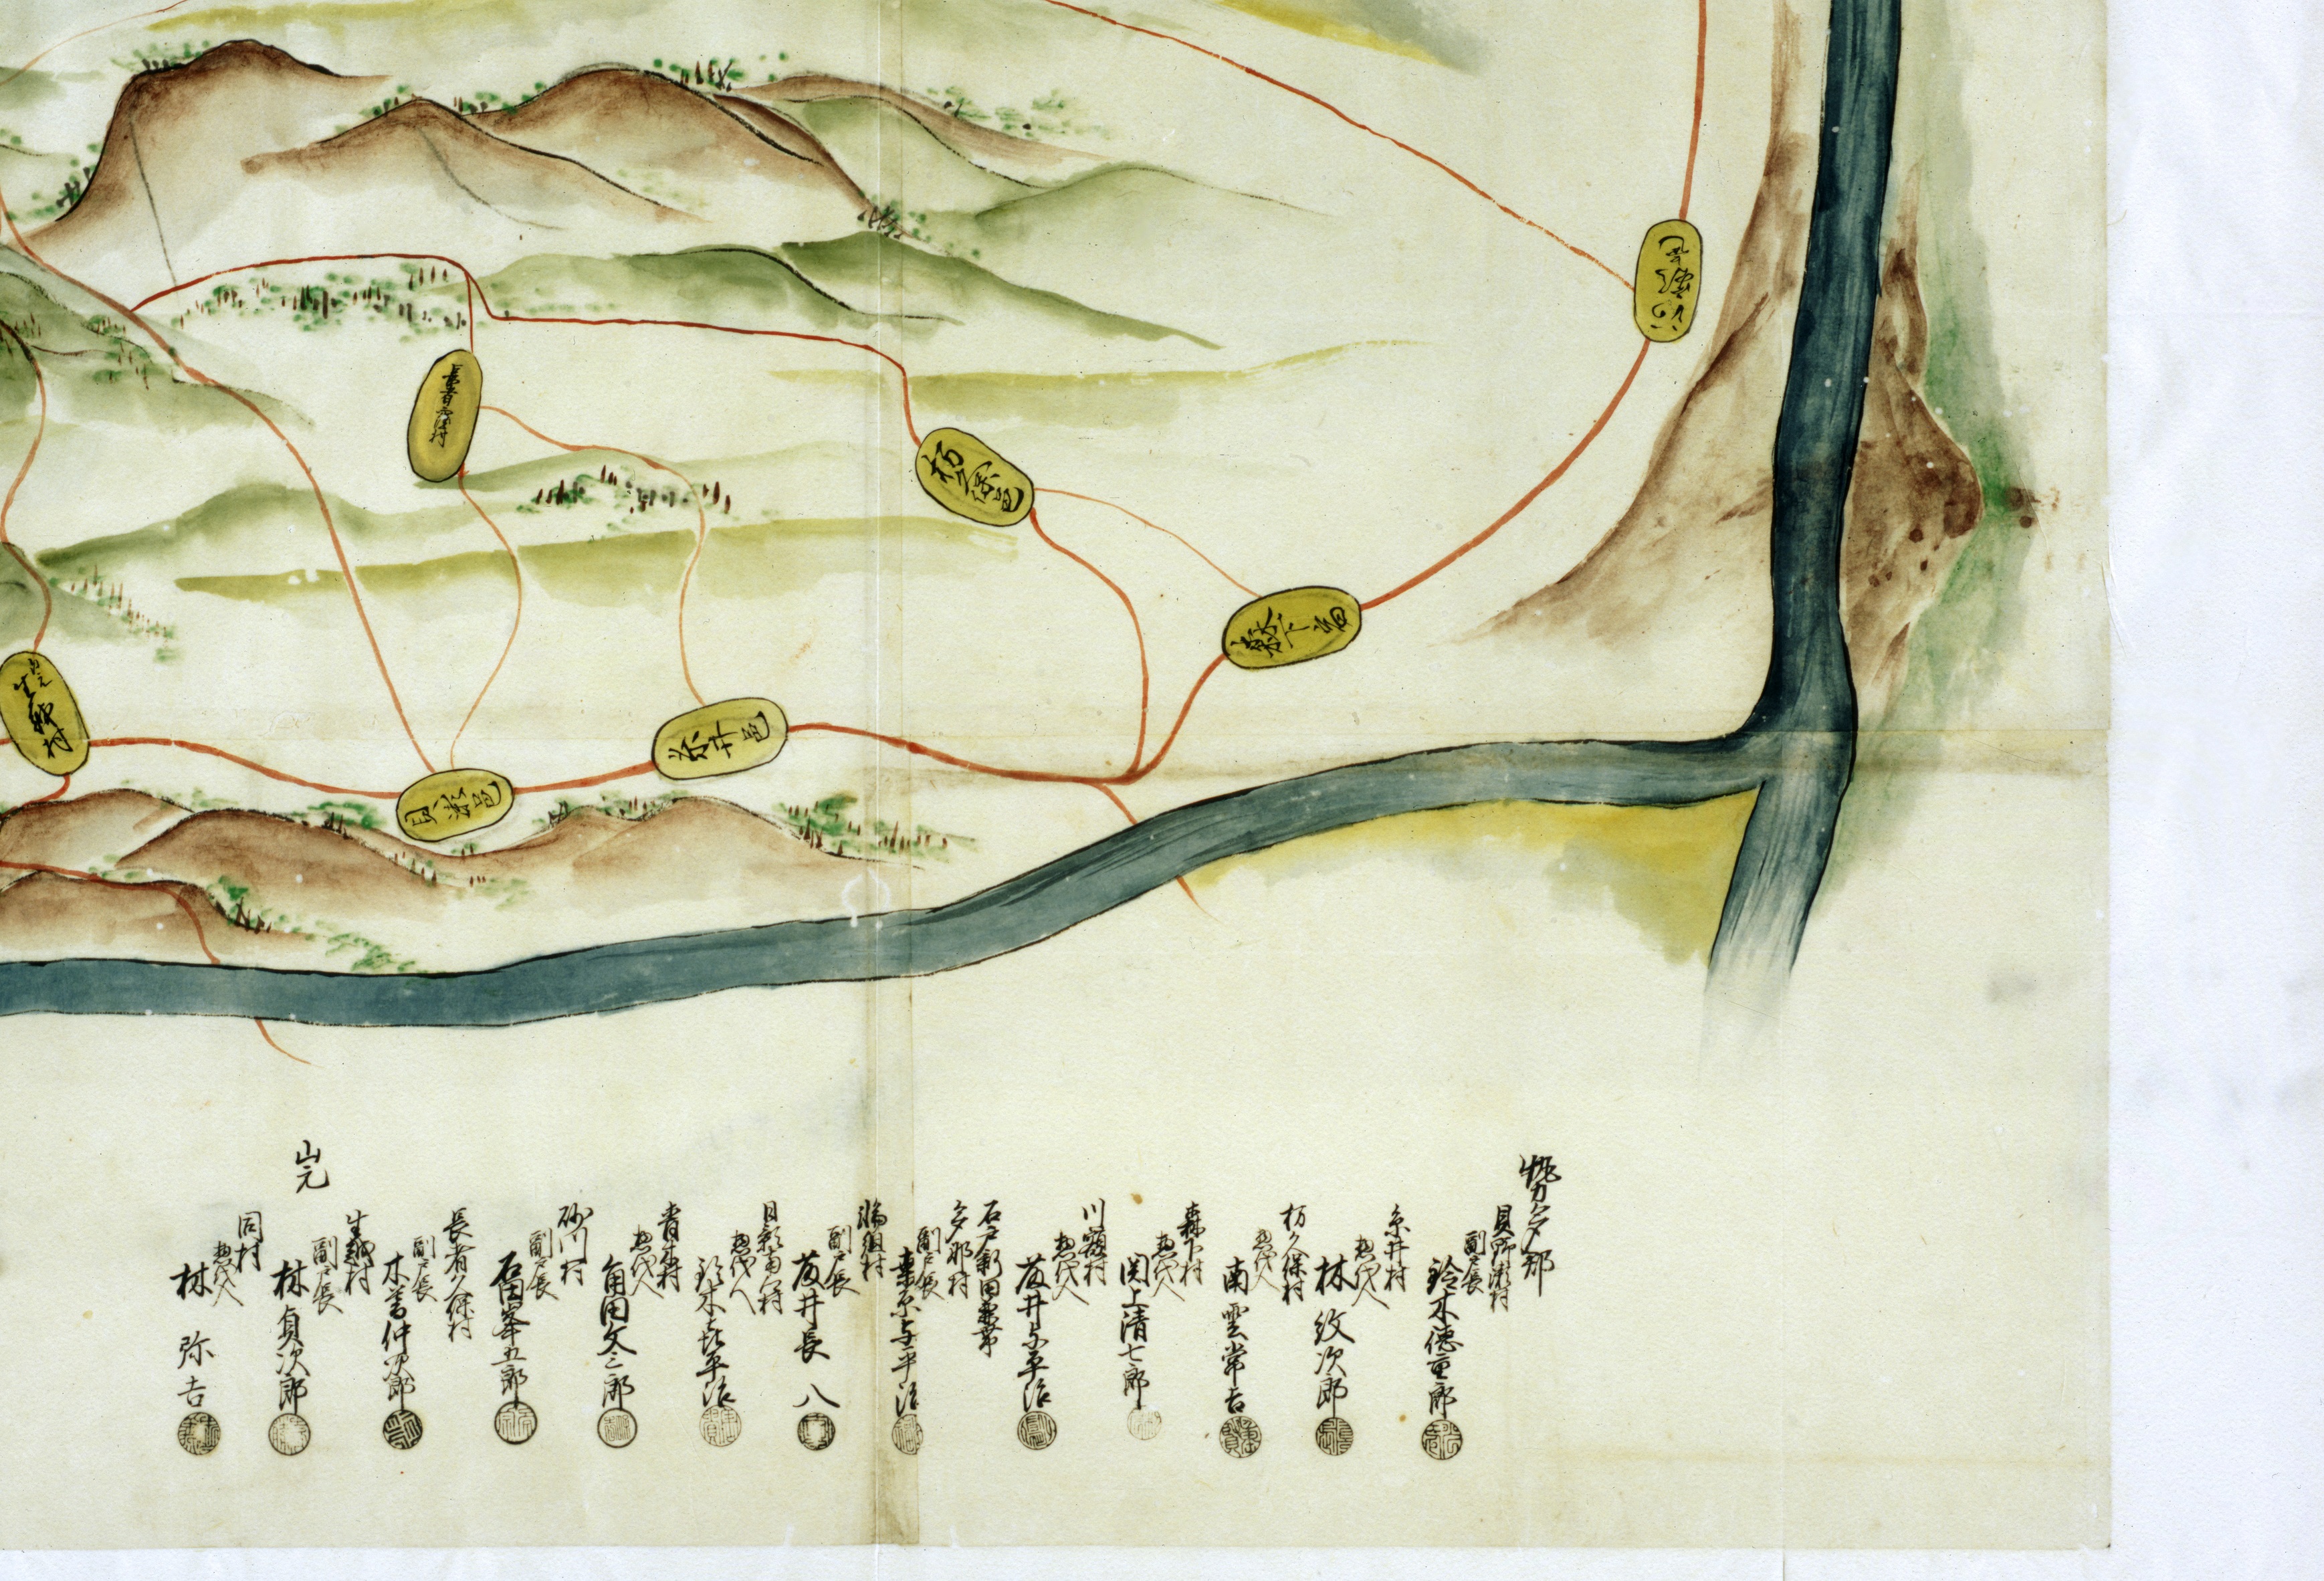 糸井邑
貝瀬邑
森下邑
勢多郡
貝野瀬村
副戸長
鈴木徳重郎
糸井村
惣代人
林紋次郎
枋久保村
惣代人
南雲常吉
森下村
惣代人
関上清七郎
川額村
惣代人
藤井与平治
石戸新田兼帯
多那村
副戸長
桑原与平治
輪組村
副戸長
藤井長八
日影南郷村
惣代人
鈴木喜平治
青木村
惣代人
角田文三郎
砂川村
副戸長
石田峯五郎
長者久保村
副戸長
木暮仲次郎
生越村
副戸長
林貞次郎
山元
同村
惣代人
林弥吉